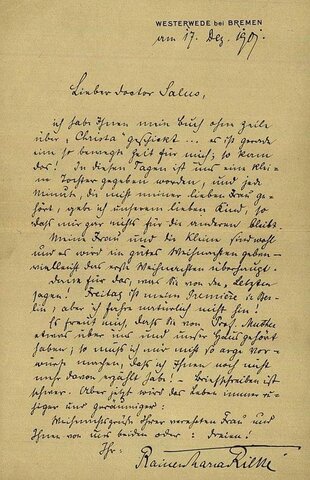 WESTERWEDE bei BREMEN
am 17. Dez. 1901.
Lieber Doctor Salus,
ich habe Ihnen mein Buch ohne Zeile
über „Christa“ geschickt ... es ist gerade
eine so bewegte Zeit für mich; so kam
das! In diesen Tagen ist uns eine klei-
ne Tochter gegeben worden, und jede
Minute, die nicht meiner lieben Frau ge-
hört, gehört unserem lieben Kind, so
dass nur gar nichts für die anderen bleibt.
Meine Frau und die Kleine sind wohl
und es wird ein gutes Weihnachten geben –
vielleicht das erste Weihnachten überhaupt.
Danke für das, was Sie von den „Letzten“
sagen! Freitag ist meine Première in Ber-
lin; aber ich fahre natürlich nicht hin!
Es freut mich, dass Sie von Prof. Muther
etwas über uns und unser Haus gehört
haben; so muss ich mir nicht so arge Vor-
würfe machen, dass ich Ihnen noch nicht
mehr davon erzählt habe! – Briefschreiben ist
schwer. Aber jetzt wird das Leben immer ru-
higer und geräumiger!
Weihnachtsgrüße Ihrer verehrten Frau und
Ihnen von uns beiden oder: dreien!
Ihr:
Rainer Maria Rilke